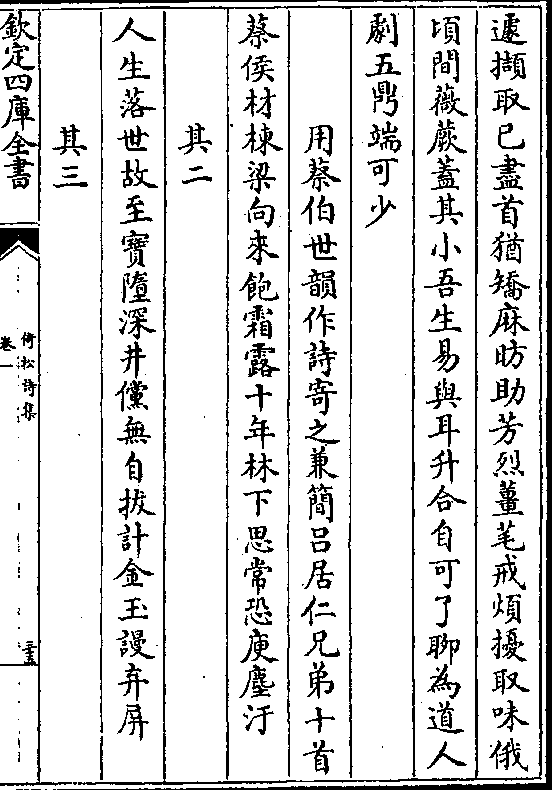 遽擷取已盡首猶矯麻肪助芳烈薑芼戒煩擾取味俄
頃間薇蕨蓋其小吾生易與耳升合自可了聊為道人
劇五鼎端可少
用蔡伯世韻作詩寄之兼簡呂居仁兄弟十首
蔡侯材棟梁向來飽霜露十年林下思常恐庾塵汙
其二
人生落世故至寶墮深井儻無自拔計金玉謾弃屏
其三
欽定四庫全書
倚松詩集
卷一